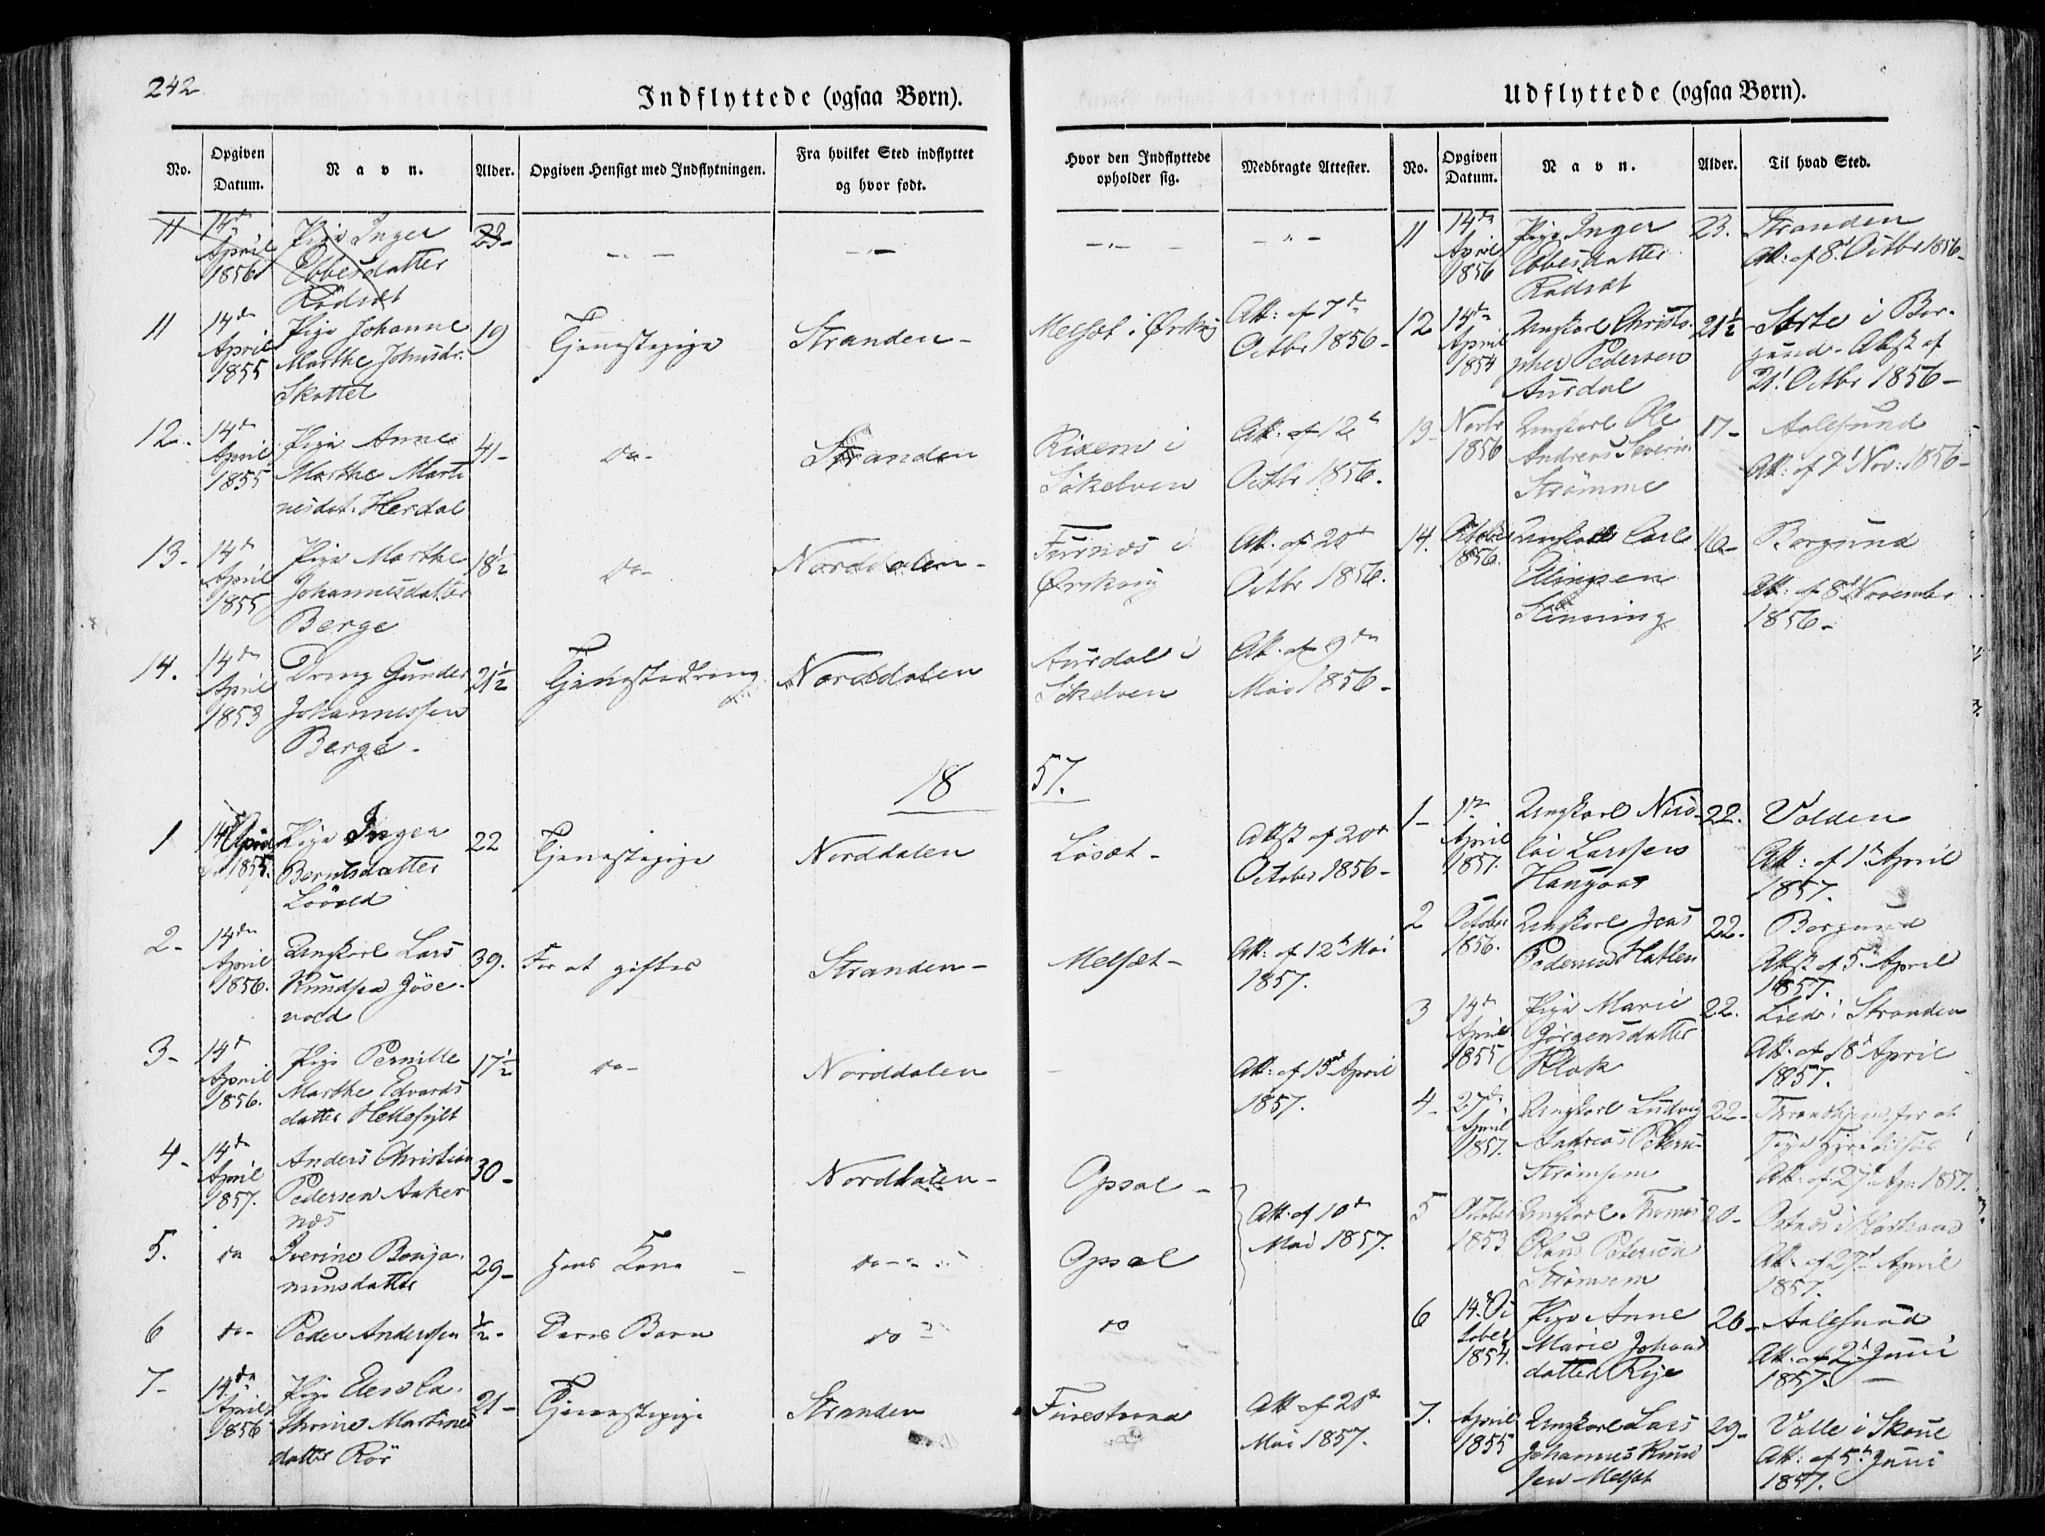 242.
Indflyttede (ogsaa Børn).
No.
Opgiven Datum.
Navn.
Alder.
Opgiven Hensigt med Indflytningen.
Fra hvilket Sted indflyttet og hvor født.
Hvor den Indflyttede opholder sig.
Medbragte Attester.
11 14de April 1856 Pige Inger Ebbesdatter Rødsæt 23-
11 14de April 1855 Pige Johanne Marthe Johnsdr. Skottet 19 Tjenestepige Stranden- Melsæt i Ørskog Att: af 7de Octbr 1856-
12- 14de April 1855 Pige Anne Marthe Martinesdat. Herdal 41- do- Stranden Risem i Søkelven Att: af 12te Octbr 1856.
13- 14de April 1855 Pige Marthe Johannesdatter Berge 18½ do- Norddalen- Furnæs i Ørskog Att: af 20de Octbr 1856.
14. 14de April 1853 Dreng Gunder Johannessen Berge- 21½ Tjenestedreng Norddalen Aursdal i Søkelven Att: af 9de Mai 1856-
1857.
1 14de April 1855. Pige Inger Berntsdatter Løvold 22 Tjenestepige Norddalen Løsæt- Attst af 20de October 1856-
2- 14de April 1856. Ungkarl Lars Knudsen Jøsenvold 39. For at giftes Stranden- Melsæt- Att: af 12te Mai 1857.
3- 14de April 1856. Pige Pernille Marthe Edvardsdatter Hellesylt 17½ do- Norddalen - Att: af 13de April 1857.
4- 14de April 1857. Anders Christian Pedersen Aakernæs 30- Norddalen- Opsal- Att: af 10de Mai 1857.
5. do Iverine Benjaminsdatter 29- Hans Kone do- Opsal
6 do- Peder Anderssen ½- Deres Barn do do
7- 14de April 1856 Pige Elen Cathrine Martinedatter Rör 21- Tjenestepige Stranden Furestrand Att af 28de Mai 1857.
Udflyttede (ogsaa Børn).
No.
Opgiven Datum.
Navn.
Alder.
Til hvad Sted.
11 14de April 1856 Pige Inger Ebbesdatter Rødsæt 23. Stranden Att: af 8de Octbr 1856-
12 14de April 1854 Ungkarl Christopher Pedersen Aursdal 21½ Sørte i Borgund. Attst af 21de Octbr 1856-
13- Novbr 1856 Ungkarl Ole Andreas Severin Strømme 17- Aalesund Att: af 7de Nov: 1856-
14. October 1856. Ungkarl Carl Ellingsen 16- Borgund Att: af 8de November 1856-
1- 1ste April 1857. Ungkarl Nicolai Larssen 22. Volden Att: af 1ste April 1857.
2 October 1856. Ungkarl Jens Pedersen Hatlen 22. Borgund Attst af 5te April 1857.
3 14de April 1855 Pige Marie Jørgensdatter Flok 22. Lied i Stranden Att: af 18de April 1857.
4- 27de April 1857. Ungkarl Ludvig Andreas Petersen Strømsem 22- Att: af 27de Apr. 1857.
5 October 1853 Ungkarl Thomas Claus Petersen Strømsem 20- Att: af 27de April 1857.
6 14de October 1854. Pige Anne Marie Johansdatter Rije 26- Aalesund Att: af 2de Juni 1857.-
7. April 1855 Ungkarl Lars Johannes Knudsen Melsæt 29- Valle i Skoue Att: af 5te Juni 1857.